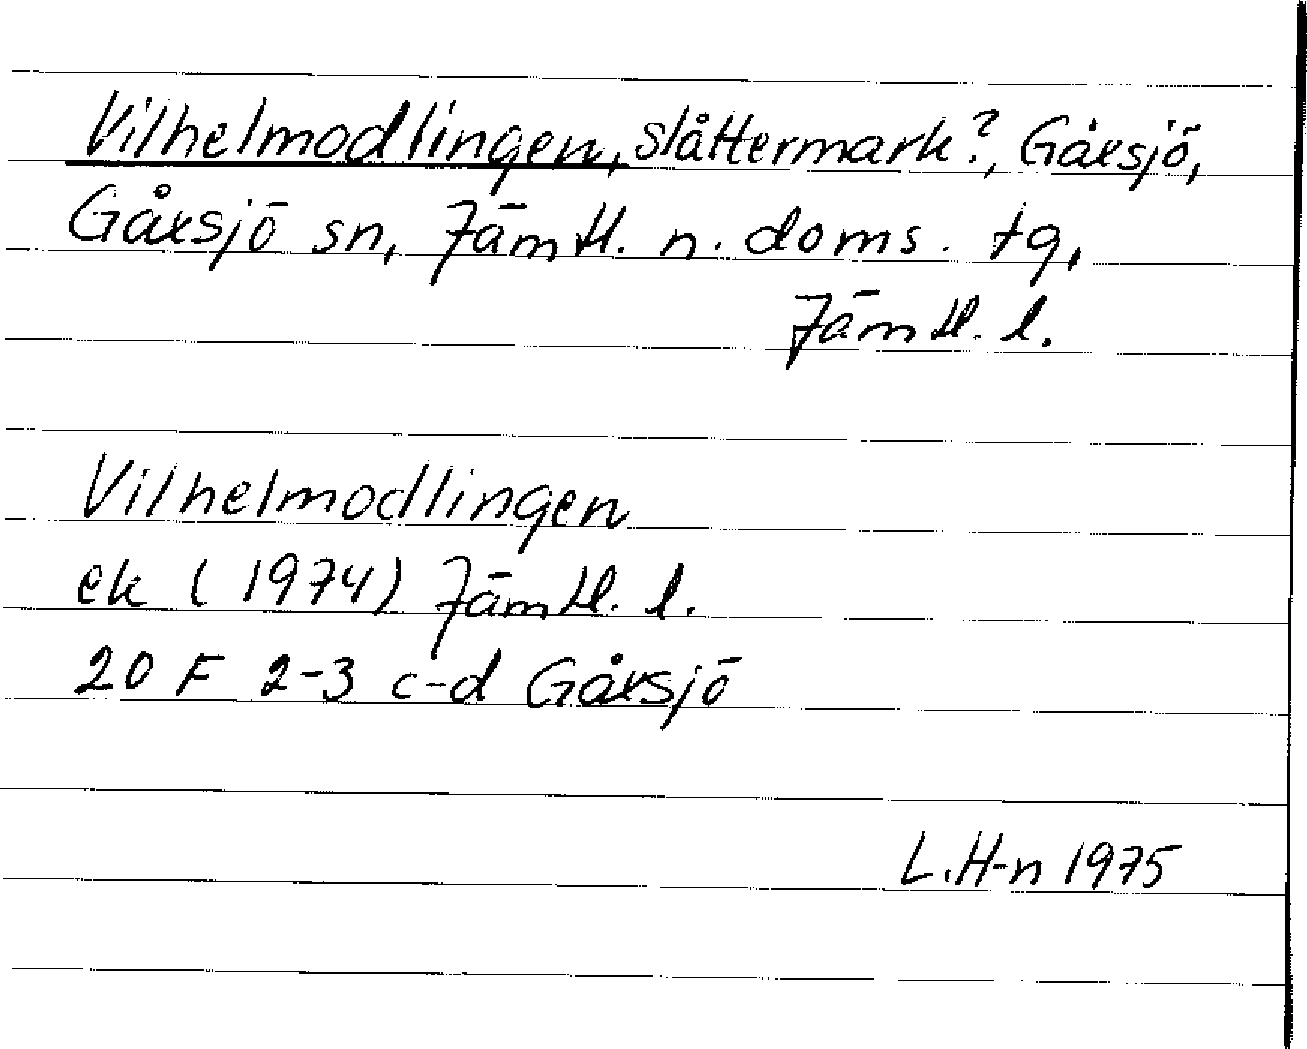 Vilhelmodlingen, slåttermark?, Gåxsjö,
Gåxsjö sn, Jämtl. n. doms. tg,
Jämtl. l.
Vilhelmodlingen
ek (1974) Jämtl. l.
20 F 2-3 c-d Gåxsjö
L.H-n 1975